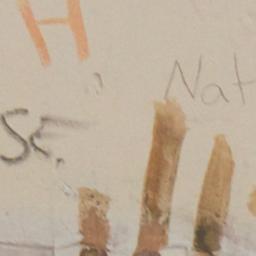 H
Nat
SE.